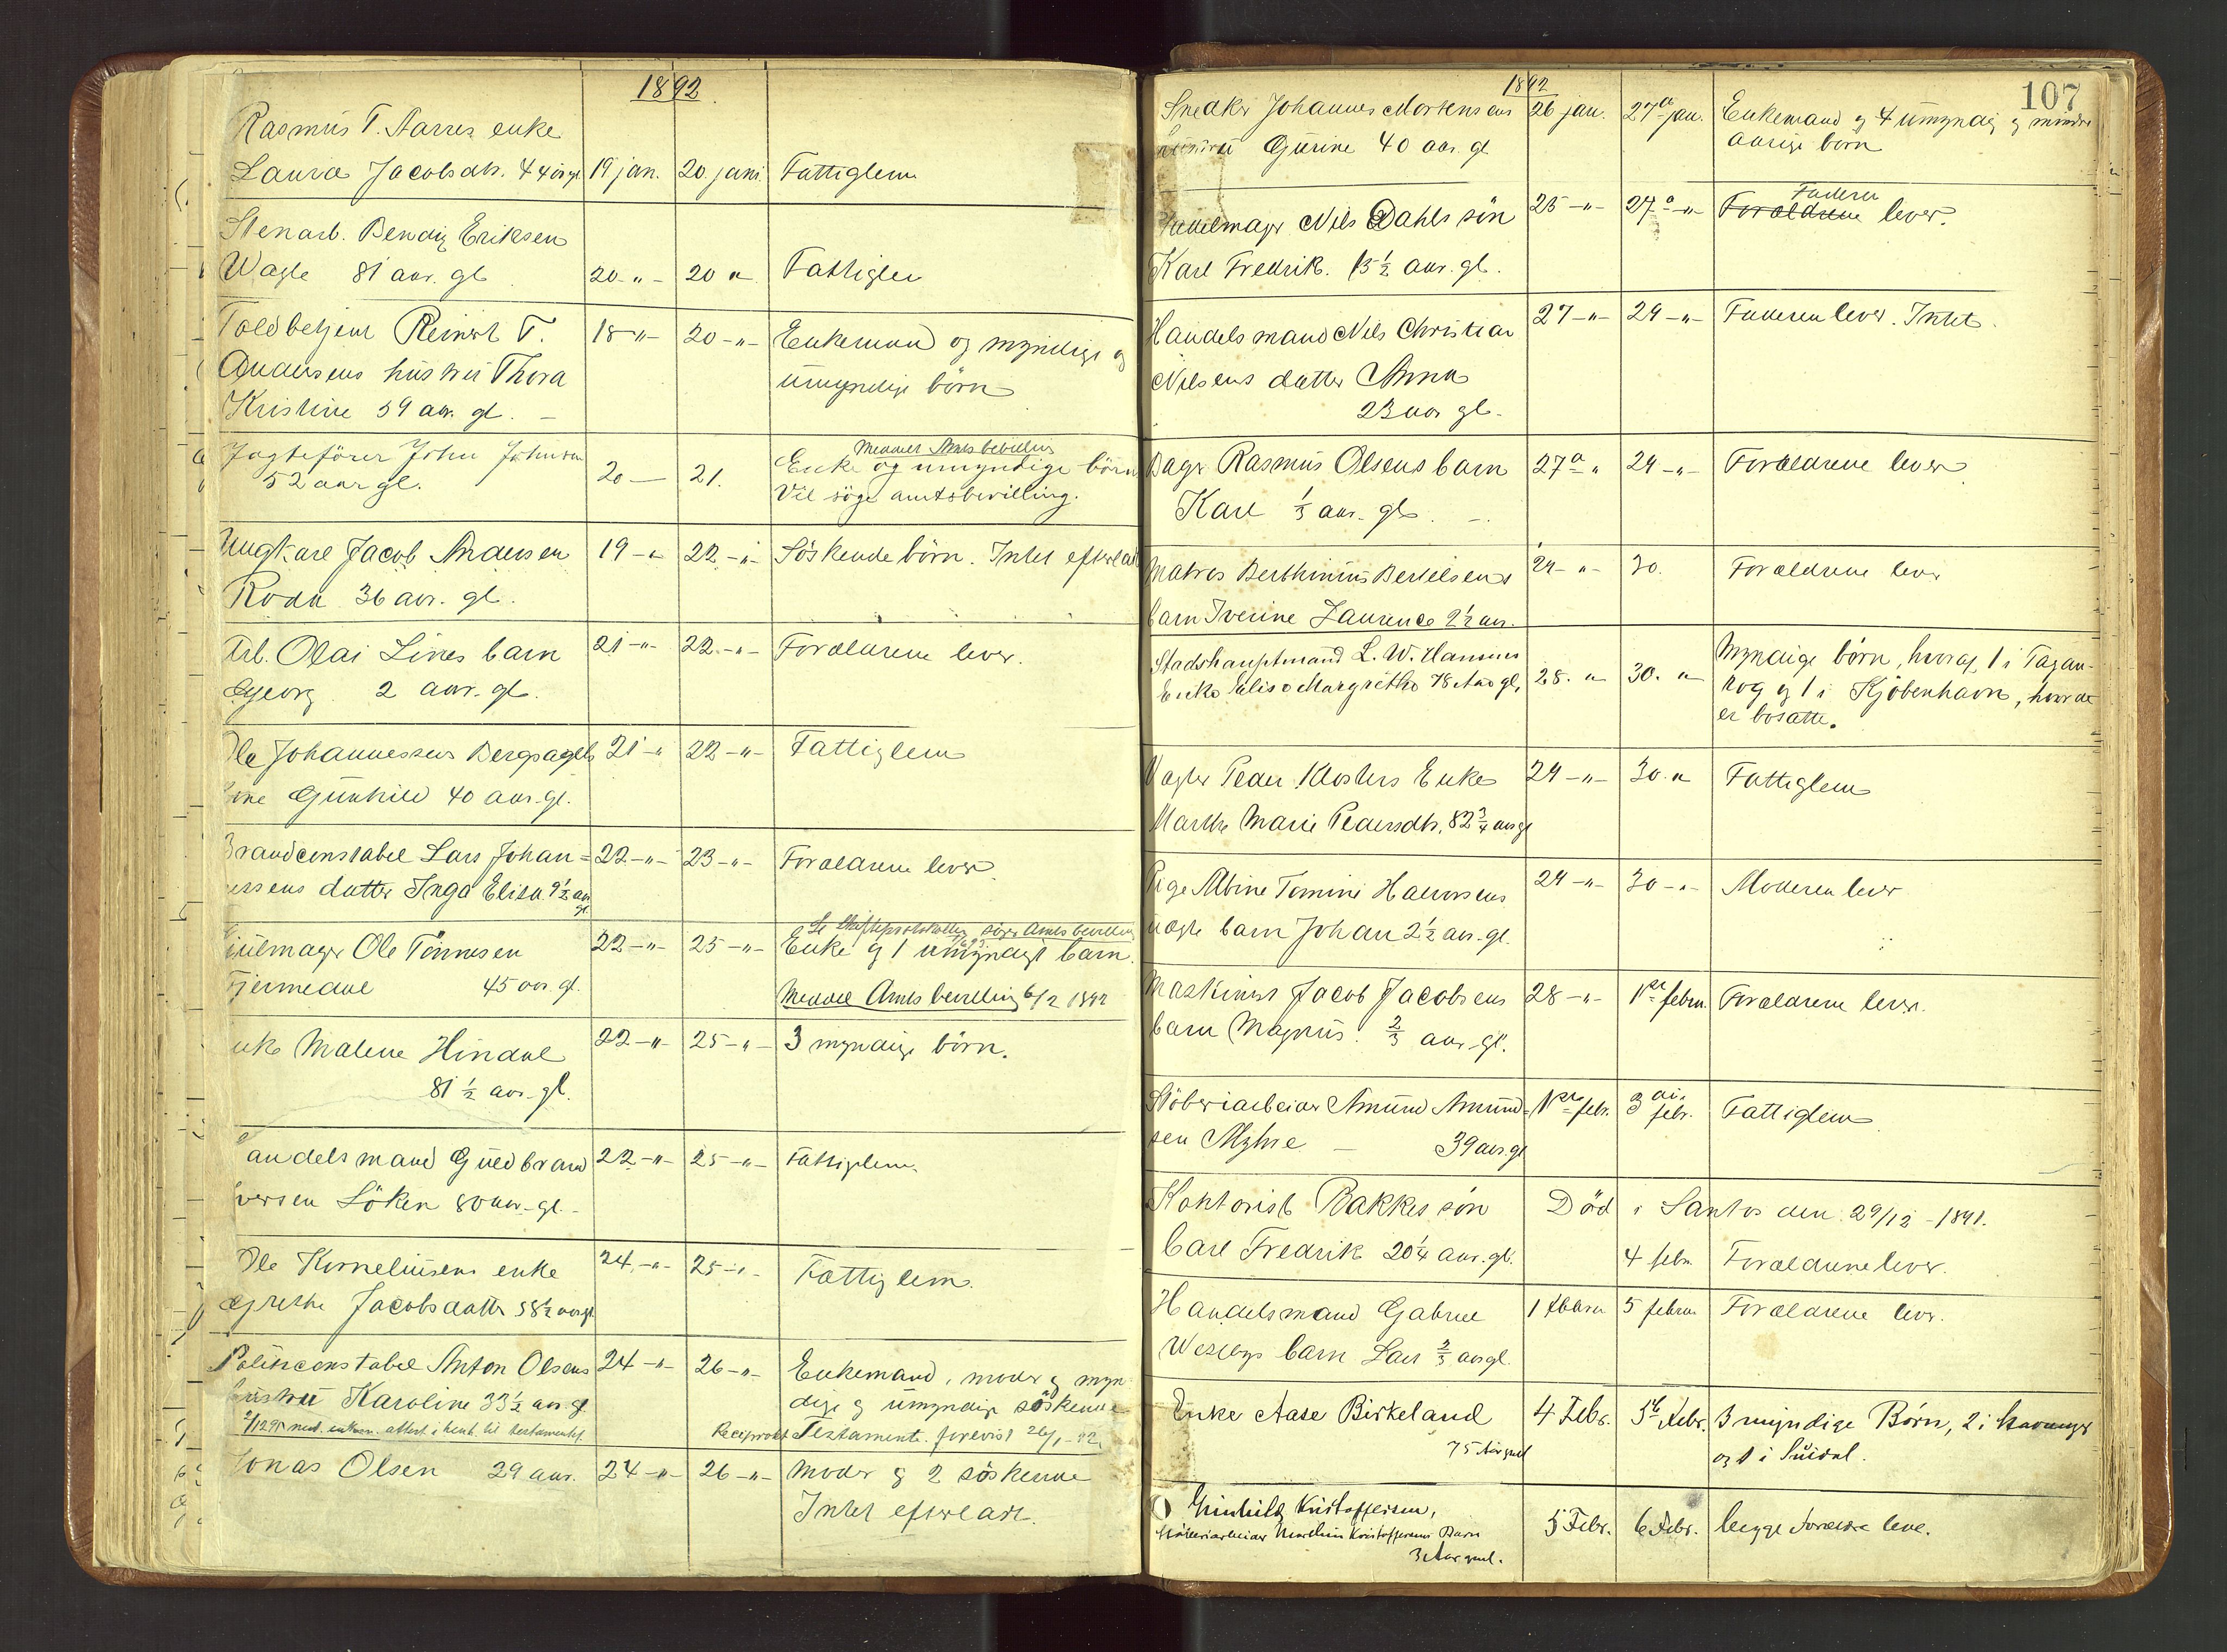 1892
Rasmus T. Aarres enke
Laura Jacobsdtr. 44 aar gl. 19 jan. 20. jani. Fattiglem
Stenarb. Bendix Eriksen
Wagle 81 aar. gl. 20. " - 20 " Fattiglem
Toldbetjent Reinert T. 18 - " - 20 - " - Enkemand og myndige og
Andersens hustru Thora umyndige børn
Kristine 59 aar. gl. -
Meddelt Amtsbevilling
Jagtefører John Johnsen 20 - 21. Enke og umyndige børn
52 aar gl. Vil søge amtsbevilling.
Ungkarl Jacob Andersen 19 - " 22 - " - Söskendebörn. Intet efterladt
Roda 36 aar. gl.
Arb. Olai Lines barn 21 - " - 22. - " - Forældrene lever.
Georg 2 aar. gl.
Ole Johannessens Bergsagels 21 - " 22 - " - Fattiglem
Gunhild 40 aar. gl.
Brandconstabel Lars Johan= 22 - " - 23 - " - Forældrene lever.
nessens datter Inga Elisa 9½ aar
gl.
Se Skifteprotokollen søge Amtsbevilling
Hjulmager Ole Tönnesen 22 - " - 25 - " - Enke og 1 umyndigt barn.
Fjermedal 45 aar. gl. Meddel Amtsbevilling 6/2 1892
Enke Malene Hindal 22 - " - 25 - " - 3 myndige börn.
81 ½ aar. gl.
Handelsmand Guldbrand 22 - " - 25 - " - Fattiglem.
Iversen Löken 80 aar. gl. -
Ole Korneliusens enke 24. - " - 25 - " - Fattiglem.
Grethe Jacobsdatter 58½ aar gl.
Politiconstabel Anton Olsens 24 - " - 26 - " - Enkemand, moder og myn
hustru Karoline 33½ aar. gl. dige og umyndige söskende
Reciprokt Testamente. forevist 26/1 - 92.
Jonas Olsen 29 aar. 24 - " - 26 - " - Moder og 2 söskende
Intet efterladt.
1892
107
Snedker Johannes Mortensens 26 jan. 27de jan. Enkemand og 4 umyndig og mindre
hustru Gurine 40 aar. gl. aarige börn
Faderen
Nils Dahls sön 25 - " - 27de - " - Forældrene lever.
Karl Fredrik. 15½ aar. gl.
Handelsmand Nils Christian 27 - " - 29 - " - Faderen lever. Intet.
Nilsens datter Anna
23 aar gl.
Bager Rasmus Olsens barn 27de " 29 - " - Forældrene lever
Karl ⅓ aar. gl. -
Matros Berthinius Bertelsens 29 - " - 30. Forældrene lever
barn Iverine Laurence 2½ aar.
Stadshauptmand L. W. Hansens 28. " 30. " Myndige börn, hvoraf 1 i Tagan-
Enke Elise Margrethe 78 Aar gl, rog og 1 i Kjöbenhavn, hvor de
er bosatte.
Vagter Peder Klosters Enke 29 - " - 30. " Fattiglem
Marthe Marie Pedersdtr. 82 ¾ aar gl
Pige Albine Tomine Halvorsens 29 - " - 30 - " - Moderen lever
uægte barn Johan 2½ aar. gl.
Maskinist Jacob Jacobsens 28 - " - 1ste febru. Forældrene lever.
barn Magnus. ⅔ aar. gl.
Stöberiarbeider Amund Amund= 1ste febr. 3die febr. Fattiglem
sen Myhre - 39 aar gl
Kontorist Bakkes sön Död i Santos den 29/12 - 1891.
Carl Fredrik 20¼ aar. gl. 4 febr. Forældrene lever.
Handelsmand Gabriel 1 febru 5 februa Forældrene lever.
Weslys barn Lars ⅔ aar gl.
Enke Aase Birkeland 4 Febr. 5te Febr. 3 myndige Børn, 2 i Stavanger
75 Aar gml og 1 i Suldal.
Gunhild Kristoffersen,
Støberiarbeider Martinus Kristoffersens Barn 5 Febr. 6 Febr. begge Forældre leve.
3 Aar gml.